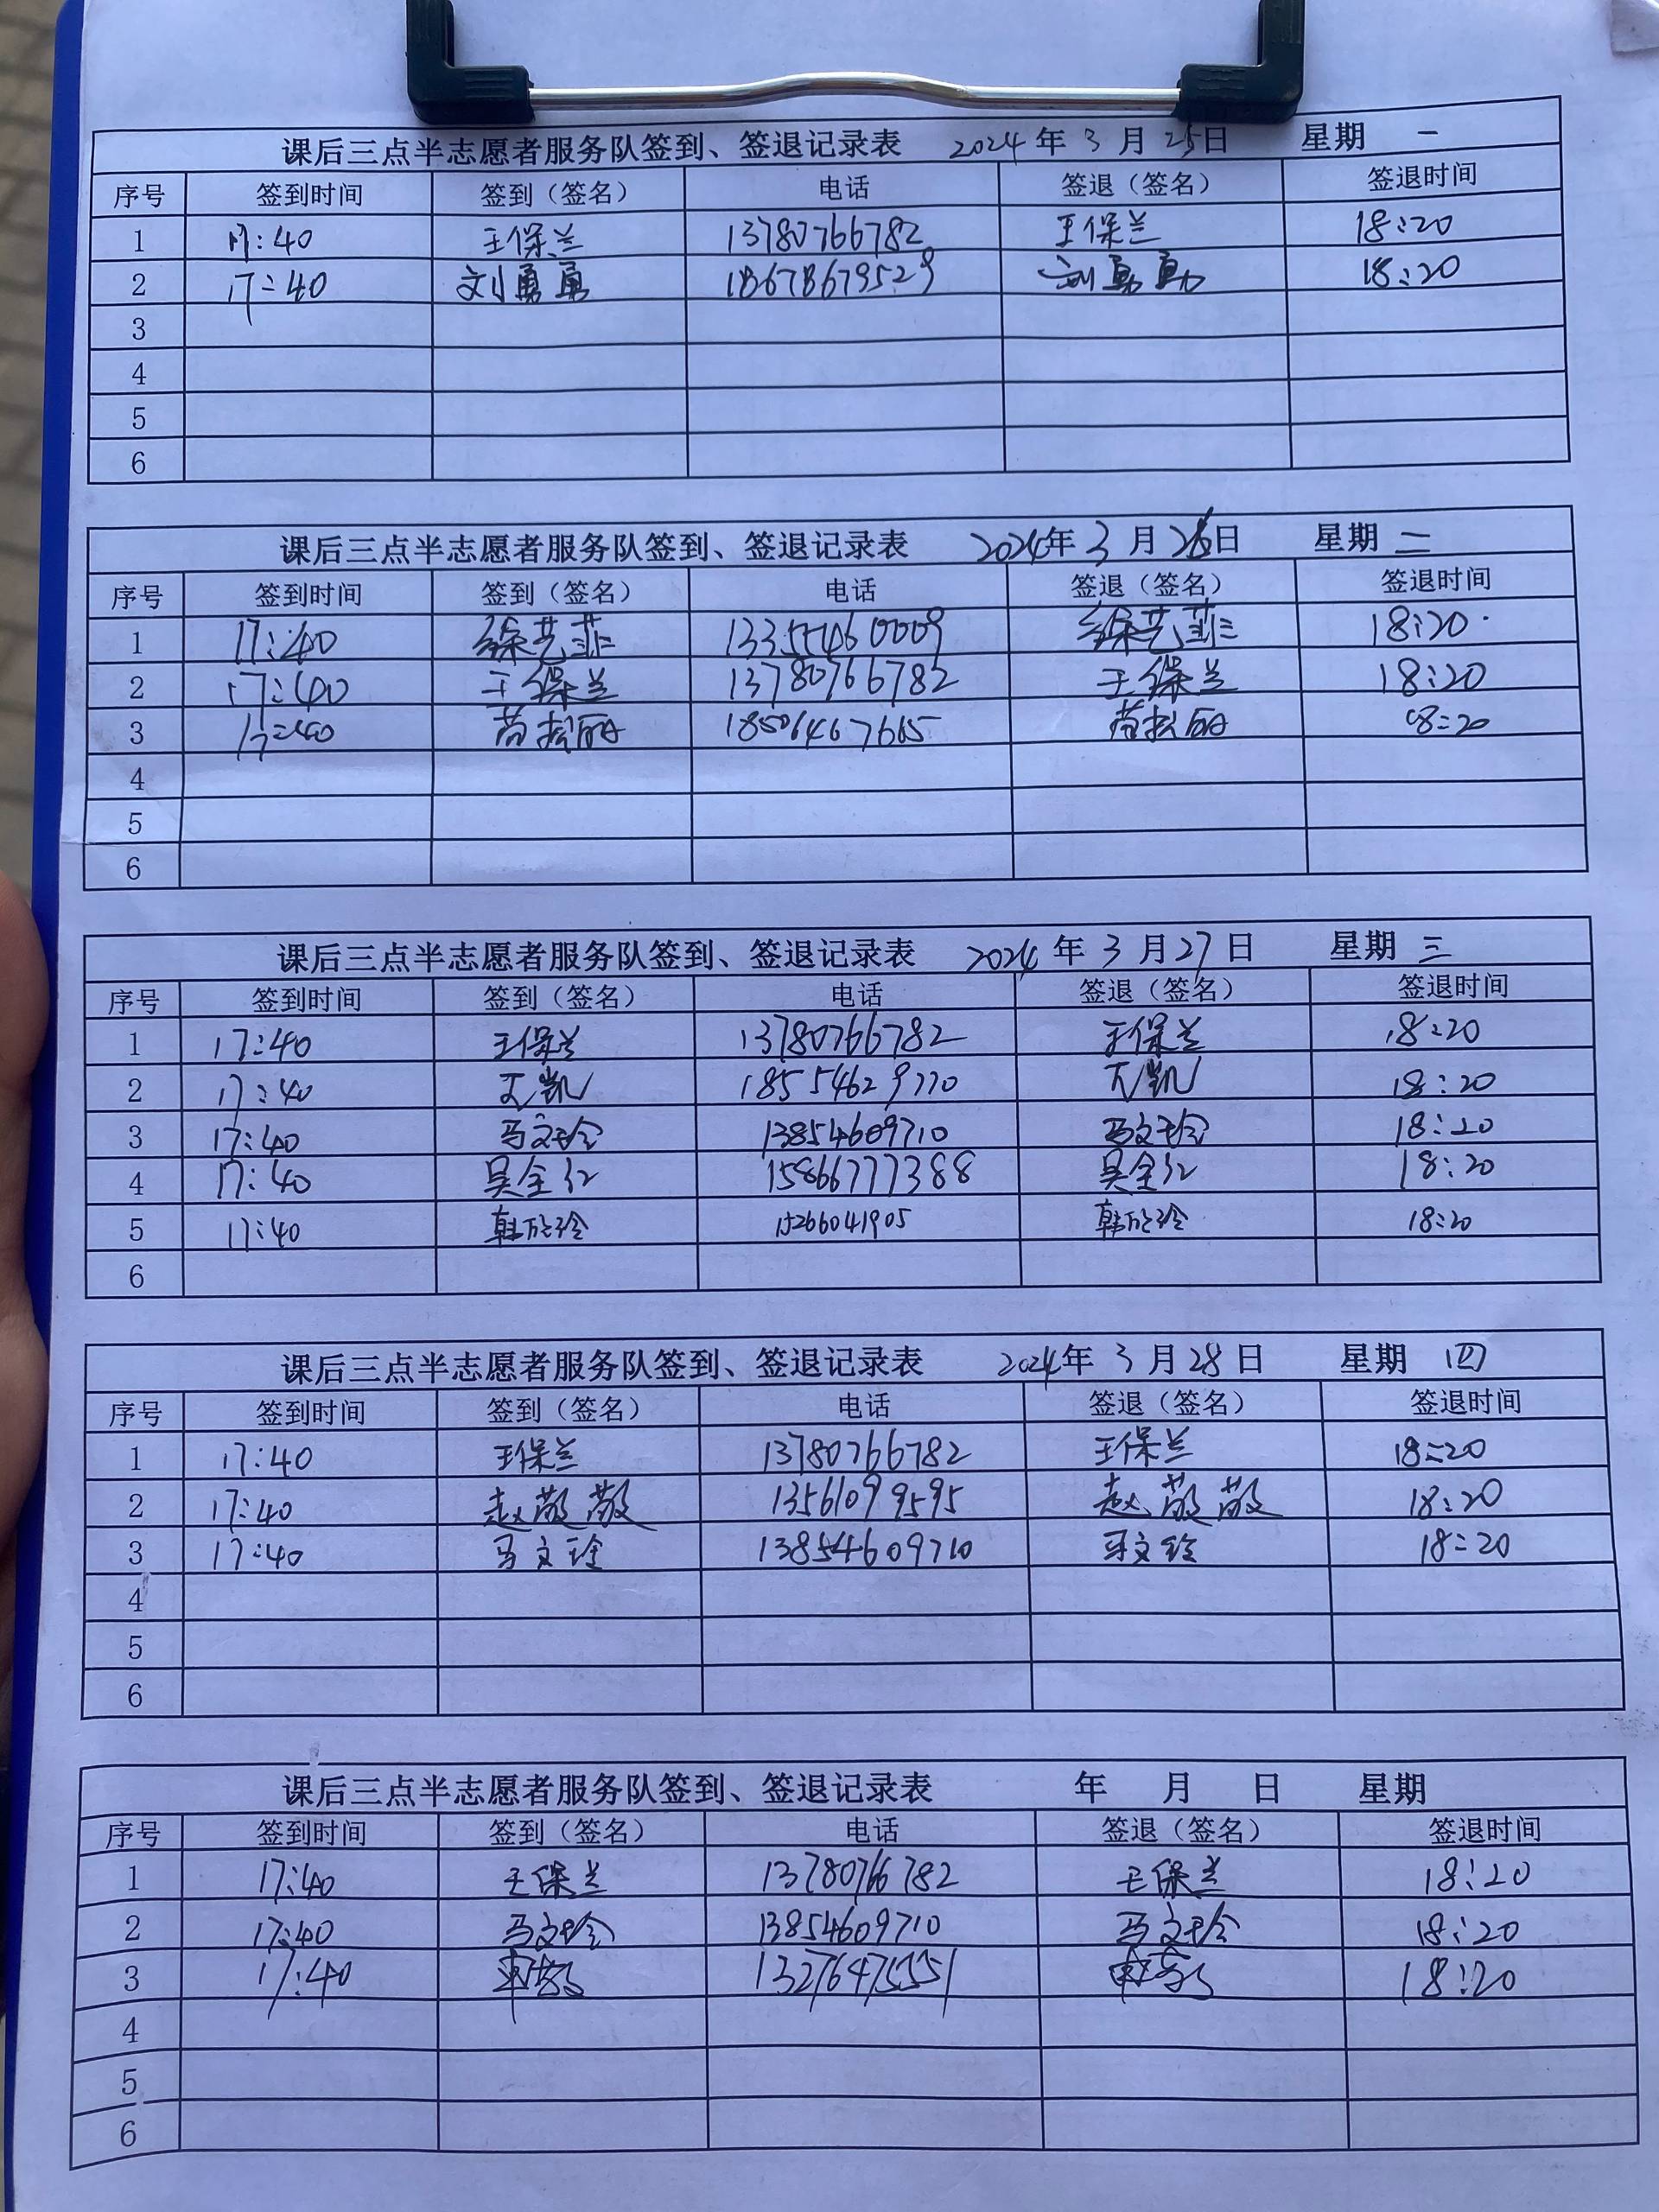 课后三点半志愿者服务队签到、签退记录表 2024年3月25日 星期 一
序号 签到时间 签到（签名） 电话 签退（签名） 签退时间
1 17:40 王保兰 13780766782 王保兰 18:20
2 17:40 刘勇勇 18678679529 刘勇勇 18:20
3
4
5
6
课后三点半志愿者服务队签到、签退记录表 2024年3月26日 星期 二
序号 签到时间 签到（签名） 电话 签退（签名） 签退时间
1 17:40 徐艺菲 13355460009 徐艺菲 18:20
2 17:40 王保兰 13780766782 王保兰 18:20
3 17:40 18:20
4
5
6
课后三点半志愿者服务队签到、签退记录表 2024年3月27日 星期 三
序号 签到时间 签到（签名） 电话 签退（签名） 签退时间
1 17:40 王保兰 13780766782 王保兰 18:20
2 17:40 18554629770 18:20
3 17:40 马文玲 13854609710 马文玲 18:20
4 17:40 吴全红 15866777388 吴全红 18:20
5 17:40 韩欣玲 15266041905 韩欣玲 18:20
6
课后三点半志愿者服务队签到、签退记录表 2024年3月28日 星期 四
序号 签到时间 签到（签名） 电话 签退（签名） 签退时间
1 17:40 王保兰 13780766782 王保兰 18:20
2 17:40 赵敬敬 13561099595 赵敬敬 18:20
3 17:40 马文玲 13854609710 马文玲 18:20
4
5
6
课后三点半志愿者服务队签到、签退记录表 年 月 日 星期
序号 签到时间 签到（签名） 电话 签退（签名） 签退时间
1 17:40 王保兰 13780766782 王保兰 18:20
2 17:40 马文玲 13854609710 马文玲 18:20
3 17:40 13276475551 18:20
4
5
6